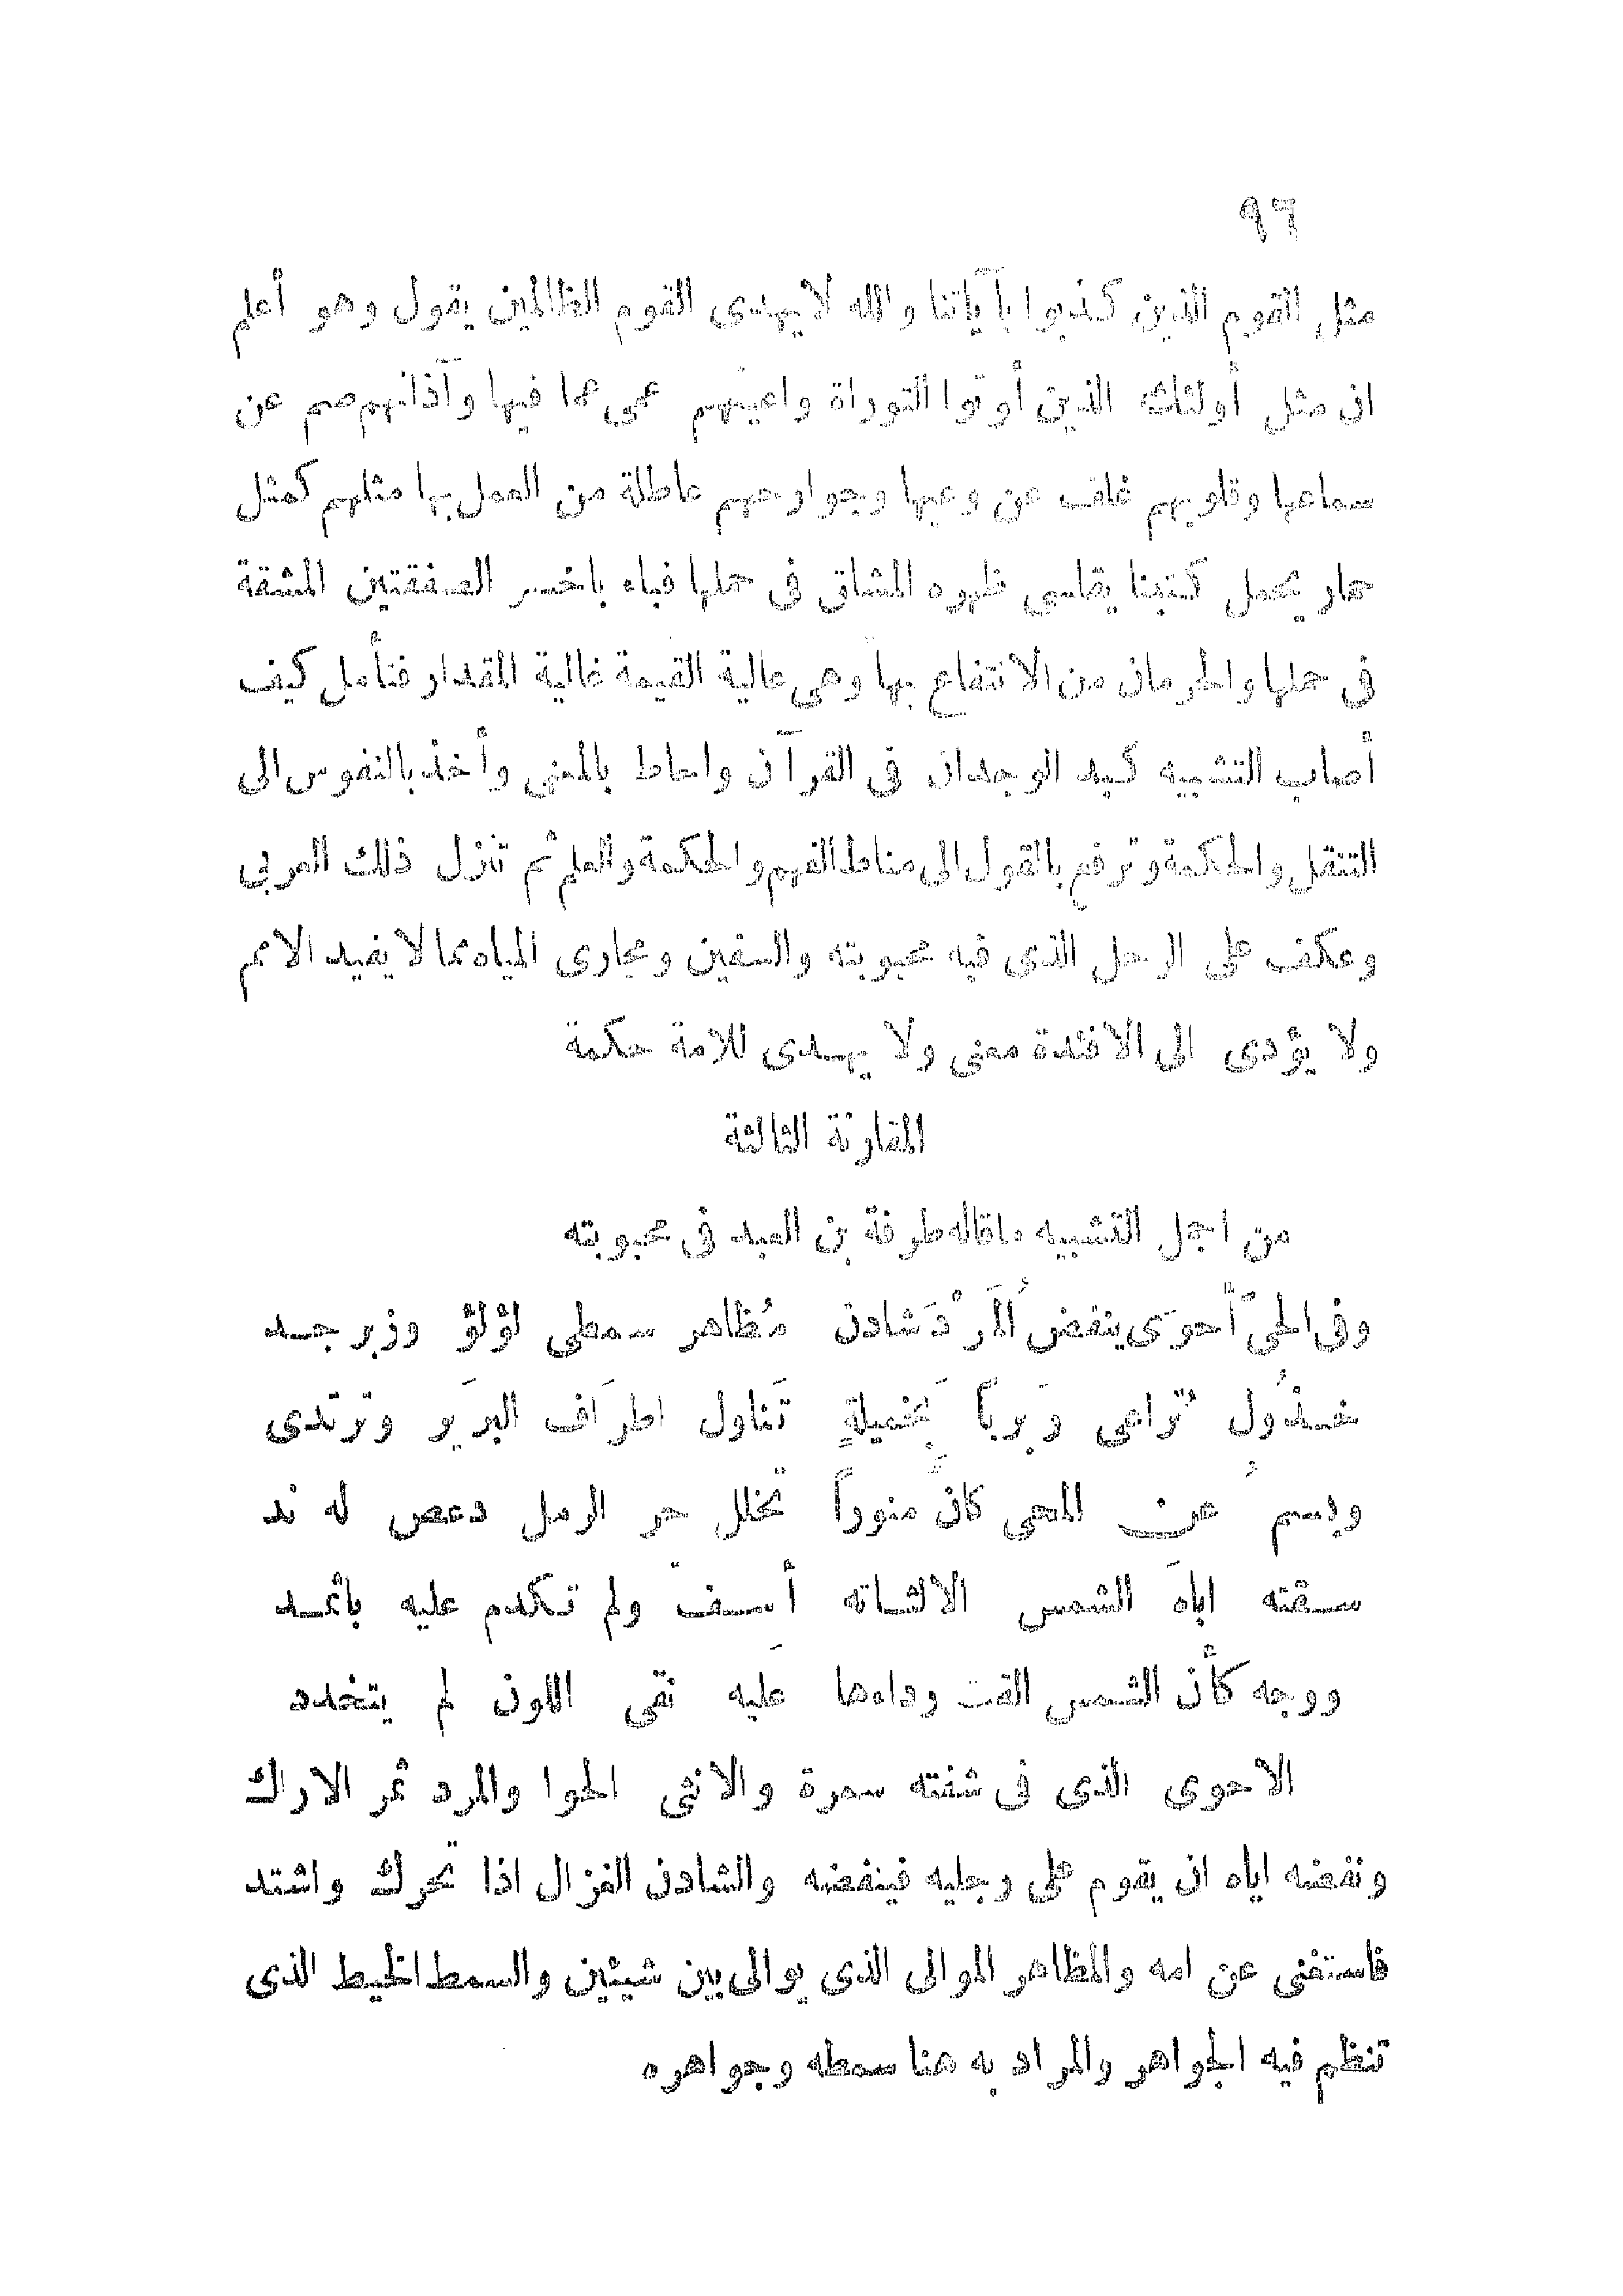 ٩٦
مثل القوم الذين كذبوا بآياتنا والله لا يهدى القوم الظالمين يقول وهو أعلم
ان مثل أولئك الذين أوتوا التوراة واعينهم عمى عما فيها وآذانهم صم عن
سماعها وقلوبهم غلف عن وعيها وجوارحهم عاطلة من العمل بها مثلهم كمثل
حمار يحمل كتبا يقاسى ظهره المشاق فى حملها فباء باخسر الصفقتين المشقة
فى حملها والحرمان من الانتفاع بها وهى عالية القيمة غالية المقدار فتأمل كيف
أصاب التشبيه كبد الوجدان فى القرآن واحاط بالمعنى وأخذ بالنفوس الى
التنقل والحكمة وترفع بالقول الى مناط الفهم والحكمة والعلم ثم تنزل ذلك العربى
وعكف على الرحل الذى فيه محبوبته والسفين ومجارى المياه مما لا يفيد الامم
ولا يؤدى الى الافئدة معنى ولا يهدى للامة حكمة
المقارنة الثالثة
من اجمل التشبيه ماقاله طرفة بن العبد فى محبوبته
وفى الحىّ أحوَى ينفضُ المَرْدَ شادن مُظاهر سمطى لؤلؤ وزبرجد
خذُول تُراعى رَبرباً بِخميلةٍ تَناول اطرَاف البرَير وترتدى
وبسم عن المحى كانّ منوراً تخلل حر الرمل دعص له ند
سقته اياهَ الشمس الا لثاته أسفّ ولم تكدم عليه باثمد
ووجه كأن الشمس القت رداءها عَليه نقى اللون لم يتخدد
الاحوى الذى فى شفته سمرة والانثى الحوا والمرد ثمر الاراك
ونفضه اياه ان يقوم على رجليه فينفضه والشادن الغزال اذا تحرك واشتد
فاستغنى عن امه والمظاهر الموالى الذى يوالى بين شيئين والسمط الخيط الذى
تنظم فيه الجواهر والمراد به هنا سمطه وجواهره